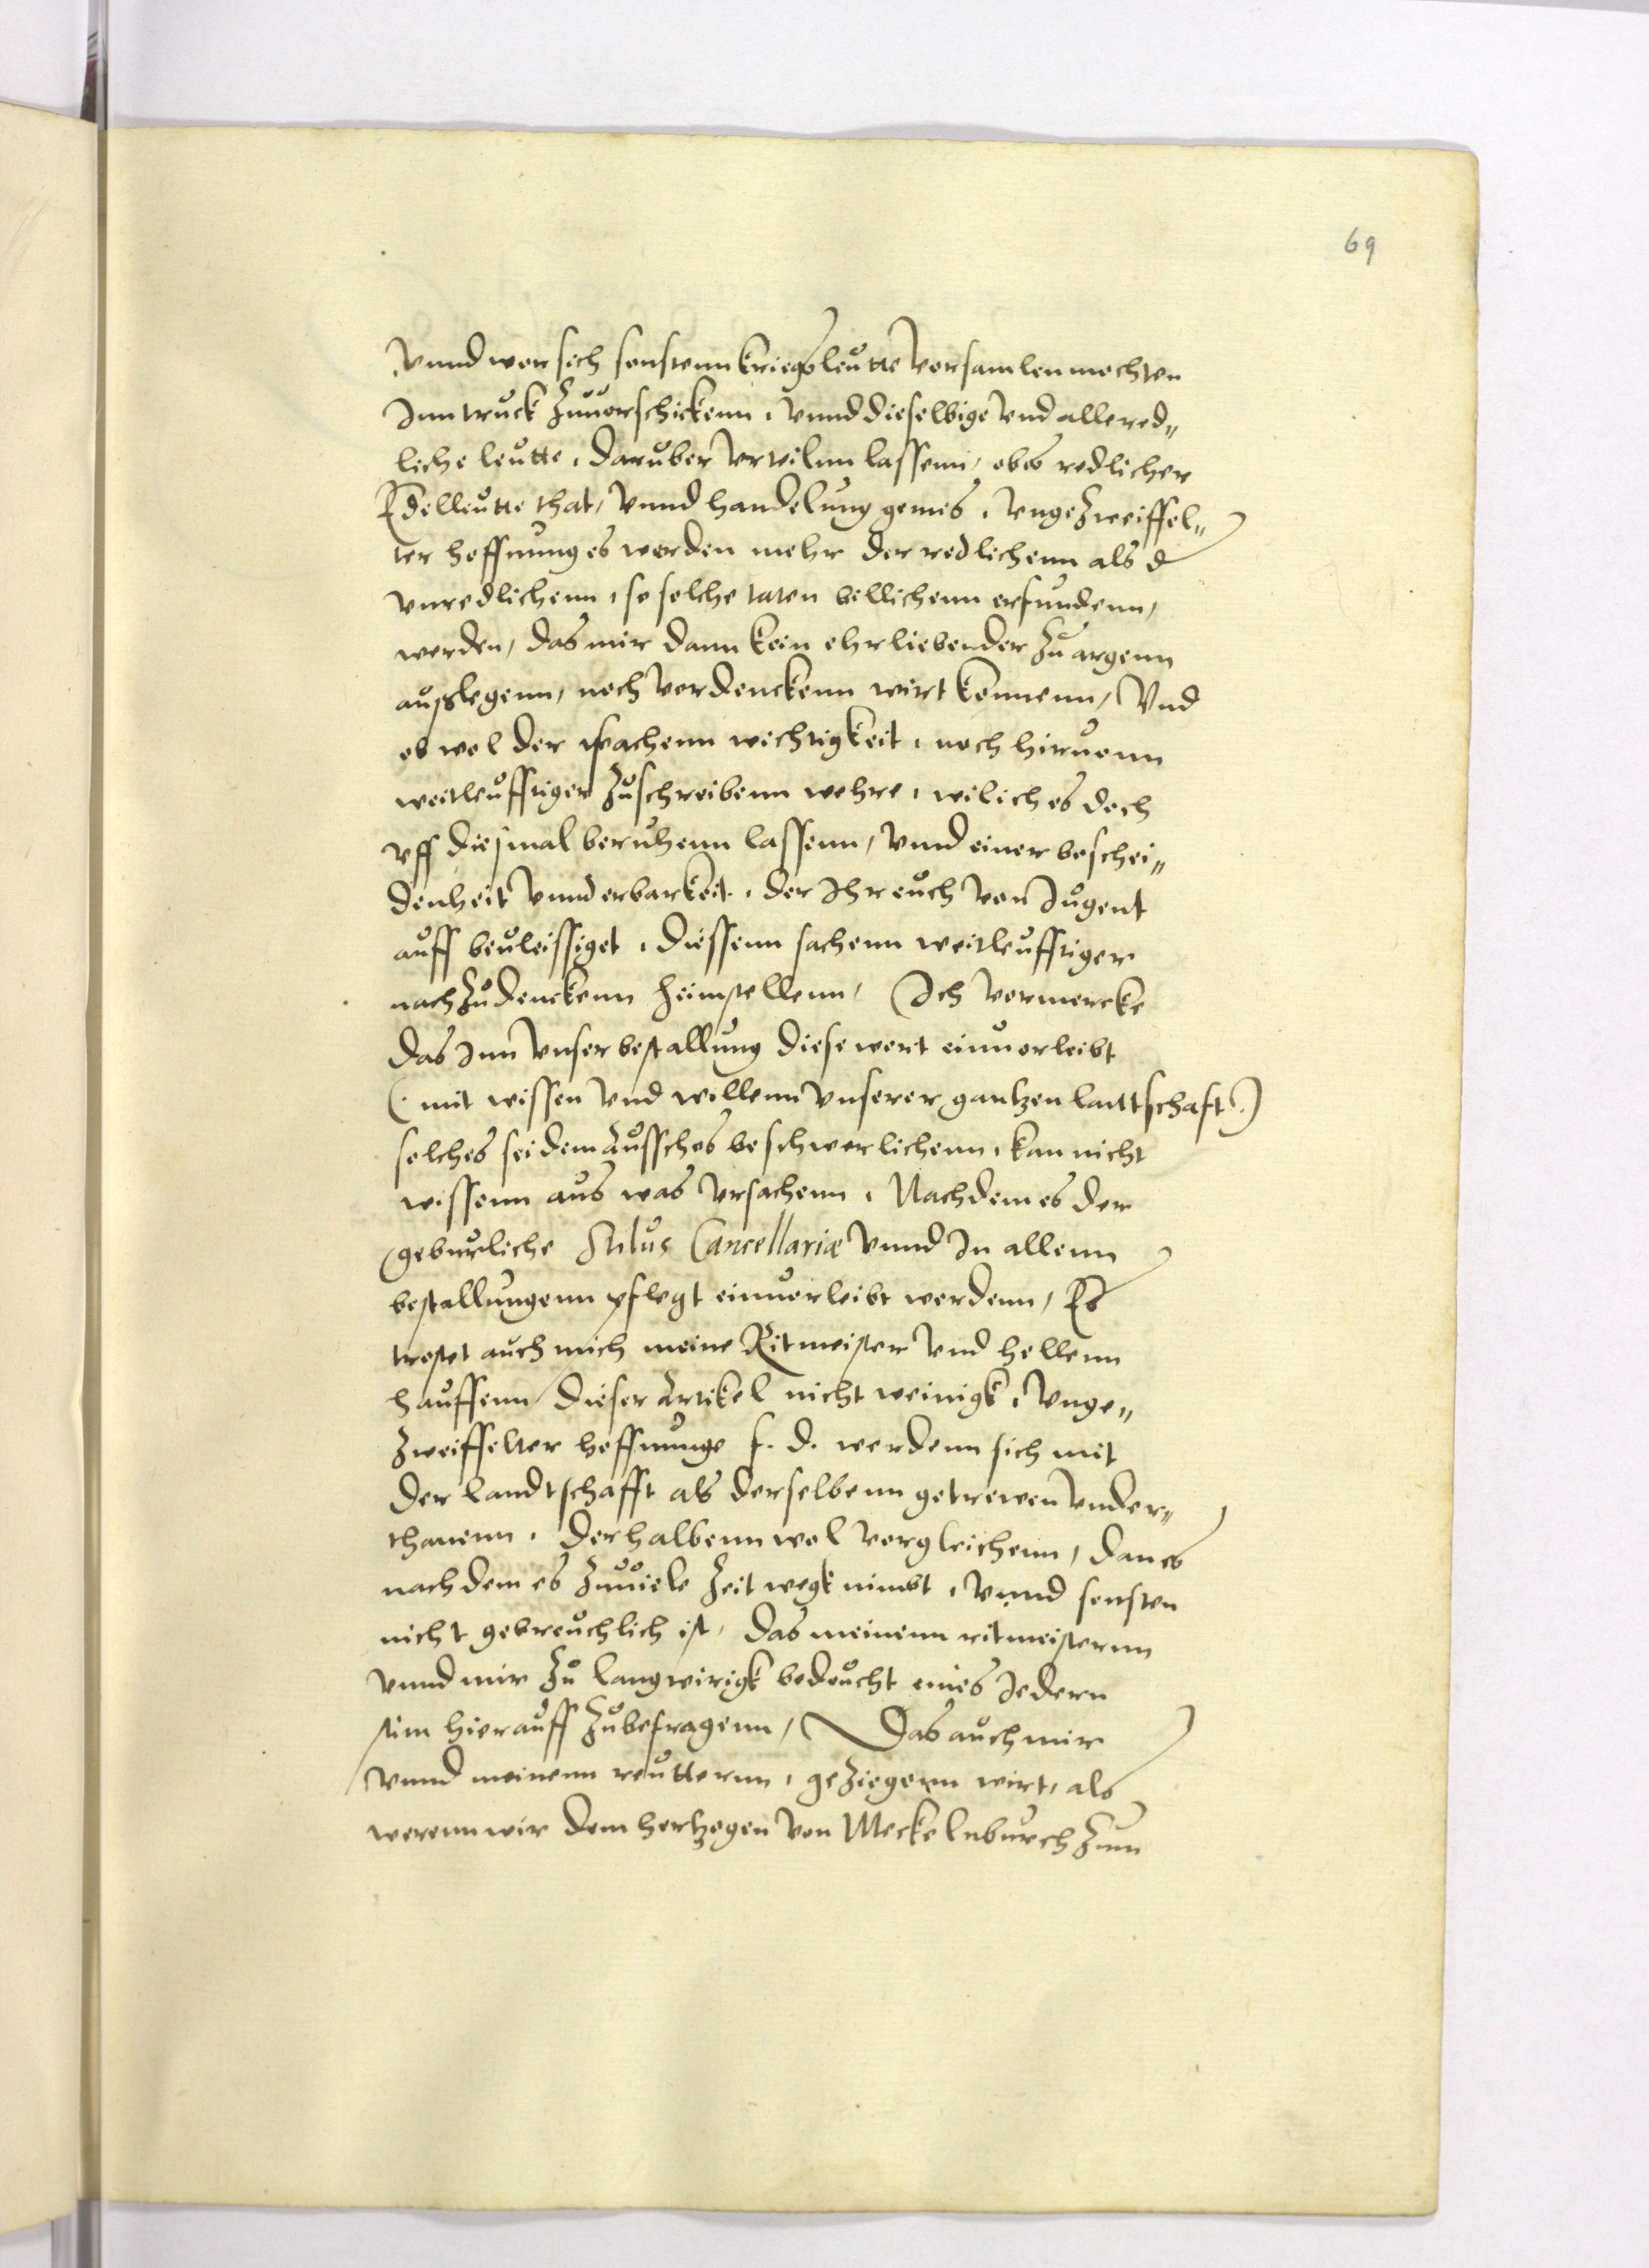 69
Vnnd wor sich sonstenn kriegsleutte versamlen mochten
Inn truck zuuorschickenn, vnnd dieselbige vnd alle red„
liche leutte, daruber vrteilnn lassenn, ob es redlicher
Edelleutte that, vnnd handelung gemes, vngezweiffel„
ter hoffnung es werden mehr der redlichenn als d
vnredlichenn, so solche taten billichenn erfundenn,
werden, das mir dann kein ehrliebender zu argenn
auslegenn, noch verdenckenn wirt konnenn, Vnd
ob wol der sachenn wichtigkeit, noch hiruonn
weitleufftiger zuschreibenn wehre, wil ich es doch
vff diesmal beruhenn lassenn, vnnd einer beschei„
denheit vnnd erbarkeit, der Ihr euch von Jugent
auff beuleissiget, diessenn sachenn weitleufftiger
nachzudenckenn heimstellenn, Ich vermercke
das Inn vnser bestallung diese wort einuorleibt
(: mit wissen vnd willenn vnserer gantzen lanttschaft :)
solches sei dem ausschos beschwerlichenn, kan nicht
wissenn aus was vrsachenn, Nachdem es der
geburliche Stilus Cancellariæ vnnd In allenn
bestallungenn pflegt einuorleibt werdenn, Es
trostet auch mich meine Ritmeister vnd hellenn
hauffenn dieser Artikel nicht weinigk, vnge„
zweiffelter hoffnunge f. d. werdenn sich mit
der landtschafft als derselbenn getrewen vnder„
thanenn, derhalbenn wol vergleichenn, dan es
nach dem es zuuiele zeit wegk nimbt, vnnd sonsten
nicht gebreuchlich ist, das meinenn ritmeisternn
vnnd mir zu langwirigk bedeucht eines Jedern
stim hierauff zubefragenn, Das auch mir
vnnd meinenn reutternn, geziegenn wirt, als
werenn wir dem hertzogen von Meckelnburch zum